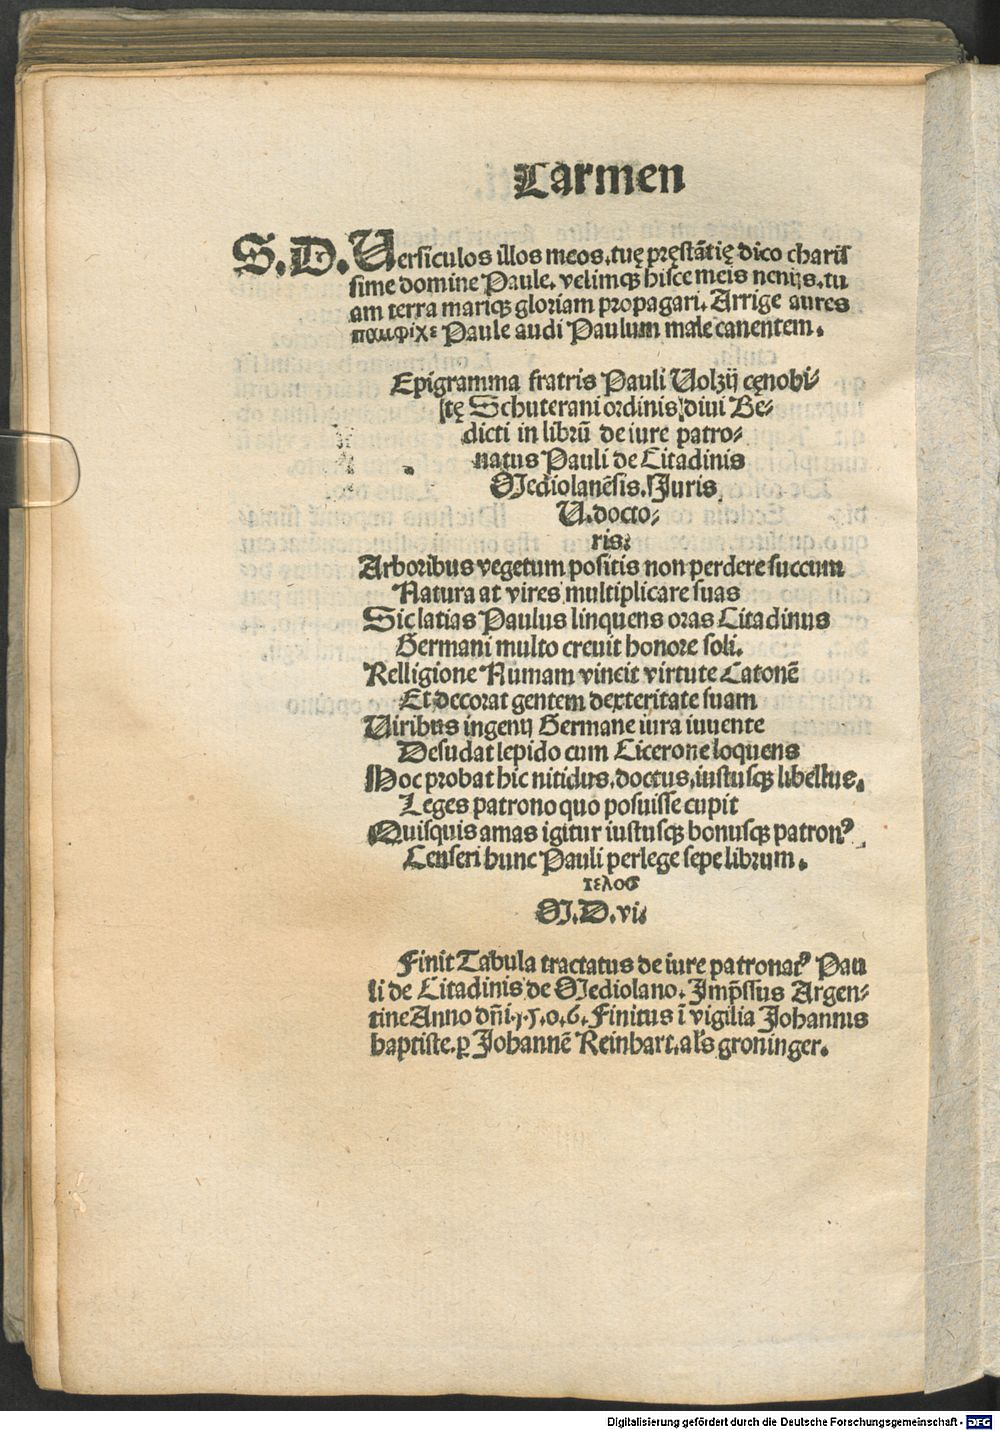 Carmen
S.D. Uersiculos illos meos, tuę pręstãtię dico charis
sime domine Paule. velimqꝫ hisce meis nenijs, tu
am terra mariqꝫ gloriam propagari. Arrige aures
παμφιχε Paule audi Paulum male canentem.
Epigramma fratris Pauli Uolzij cęnobi⸗
tę Schuterani ordinis diui Be⸗
dicti in librũ de iure patro⸗
natus Pauli de Citadinis
Mediolanẽsis. Juris
U. docto⸗
ris:
Arboribus vegetum positis non perdere succum
Natura at vires multiplicare suas
Sic latias Paulus linquens oras Citadinus
Germani multo creuit honore soli.
Relligione Numam vincit virtute Catonẽ
Et decorat gentem dexteritate suam
Uiribus ingenij Germane iura iuuente
Desudat lepido cum Cicerone loquens
Hoc probat hic nitidus, doctus, iustusqꝫ libellus.
Leges patrono quo posuisse cupit
Quisquis amas igitur iustusqꝫ bonusqꝫ patronꝰ
Censeri hunc Pauli perlege sepe librum.
τελοσ
M.D.vi.
Finit Tabula tractatus de iure patronatꝰ Pau
li de Citadinis de Mediolano. Imp̃ssus Argen⸗
tine Anno dñi.1.5.0.6. Finitus ĩ vigilia Johannis
baptiste. ꝑ Johannẽ Reinhart, al's groninger.
Digitalisierung gefördert durch die Deutsche Forschungsgemeinschaft - DFG